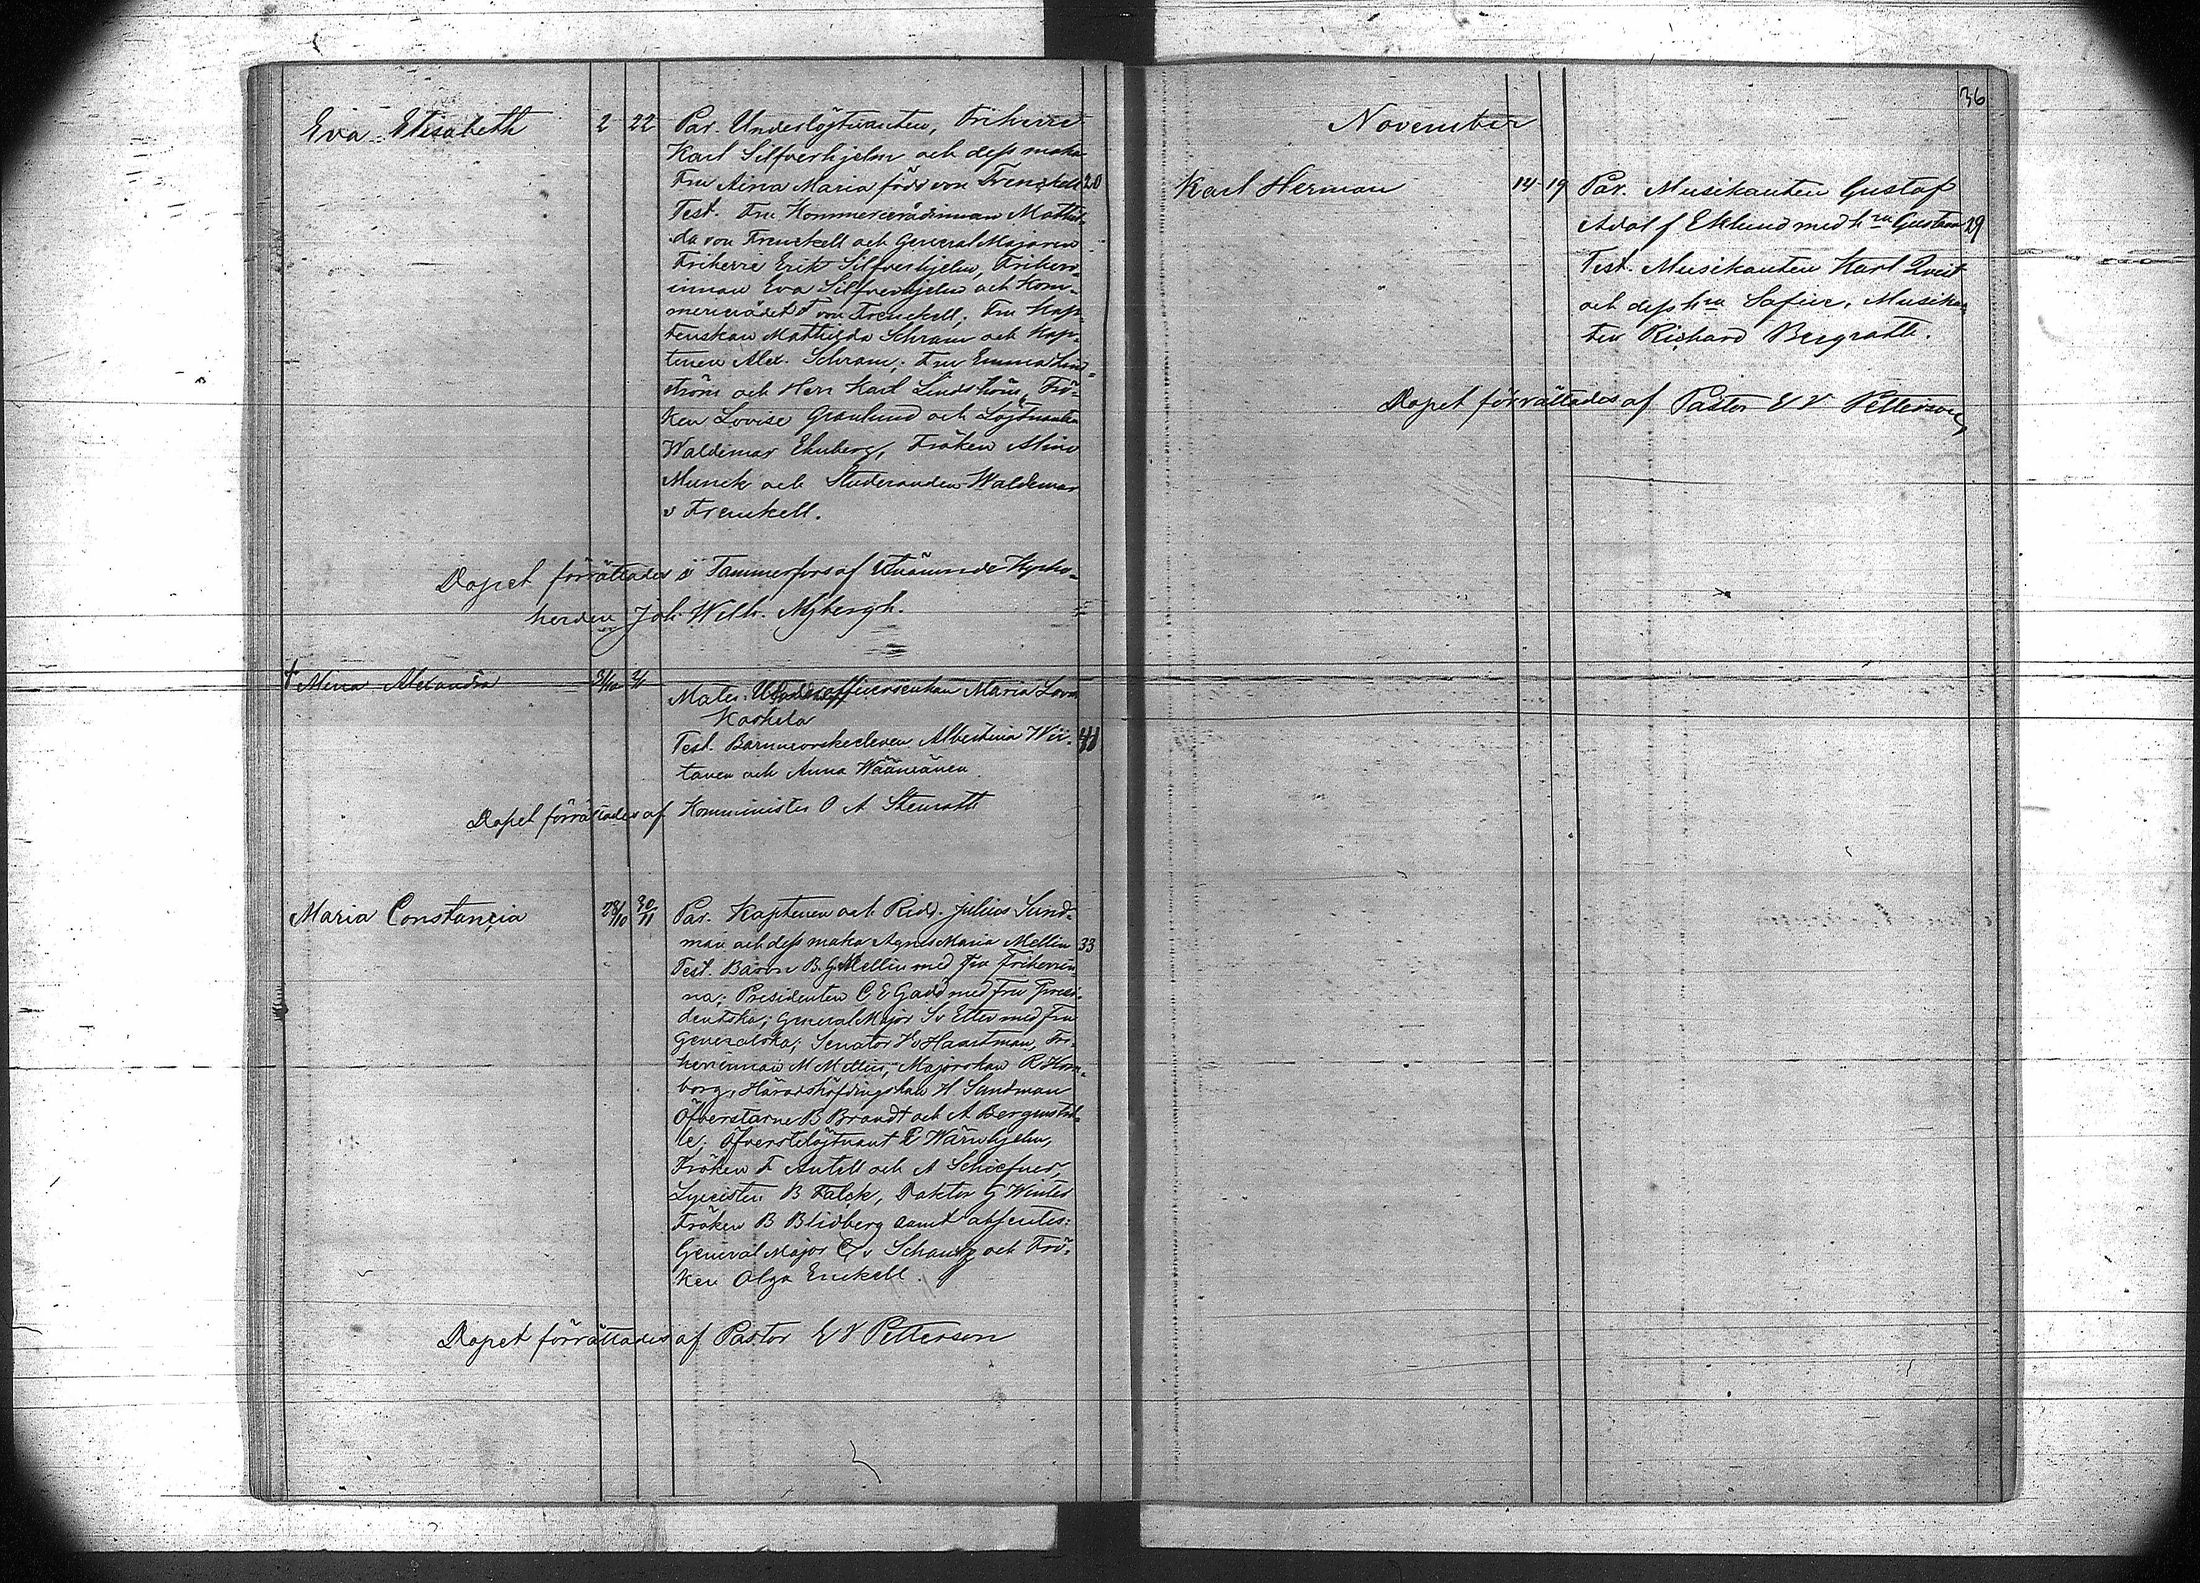 Eva Elisabeth 2 22 Par. Underlöjtnanten, Friherre
Karl Silfverhjelm och dess maka
Fru Aina Maria född von Frenckell 20
Test. Fru Kommerserådinnan Mathil-
da von Frenckell och General Majoren
Friherre Erik Silfverhjelm, Friherr-
innan Eva Silfverhjelm och Kom-
merserådet F von Frenckell; Fru Kap-
tenskan Mathilda Schram och Kap-
tenen Alex. Schram; Fru Emma Lind-
ström och Herr Karl Lindström, Frö-
ken Lovise Granlund och Löjtnanten
Waldemar Ekuberg, Fröken Alina
Munck och Studeranden Waldemar
v Frenckell.
Dopet förrättades i Tammerfors af Kyrko-
herden Joh. Wilh. Nybergh.
† Alexandra 2/10 Mater. Underofficersenkan Maria Lovisa
Koskela
Test. Barnmorskeeleven Albertina Wir- 41
tanen och Anna Wäänänen
Dopet förrättades af Komminister O A Stenroth
Maria Constançia 28/10 30/11 Par. Kaptenen och Ridd. Julius Sund-
man och dess maka Agnes Maria Mellin 33
Test. Baron B. G Mellin med Fru Friherrin-
na; Presidenten C E Gadd med Fru Presi-
dentska; General Major S v Etter med Fru
Generalska; Senator v Haartman, Fri-
herrinnan M Mellin; Majorskan R Horn-
borg, Häradshöfdingskan H Sundman
Öfverstarne B Brandt och A Bergenstrå-
le; Öfverstelöjtnant Wärnhjelm,
Fröken F Antell och A Schiefner,
Lyceisten B Falck, Doktor G Winter
Fröken B Blidberg samt absentes:
General Major C v Schantz och Frö-
ken Olga Enckell.
Dopet förrättades af Pastor E V Petterson
36
November
Karl Herman 14 19 Par. Musikanten Gustaf
Adolf Eklund med hru Gustava 29
Test. Musikanten Karl Qvist
och dess hru Sofie, Musikan-
ten Richard Bergroth.
Dopet förrättades af Pastor E V Petterson